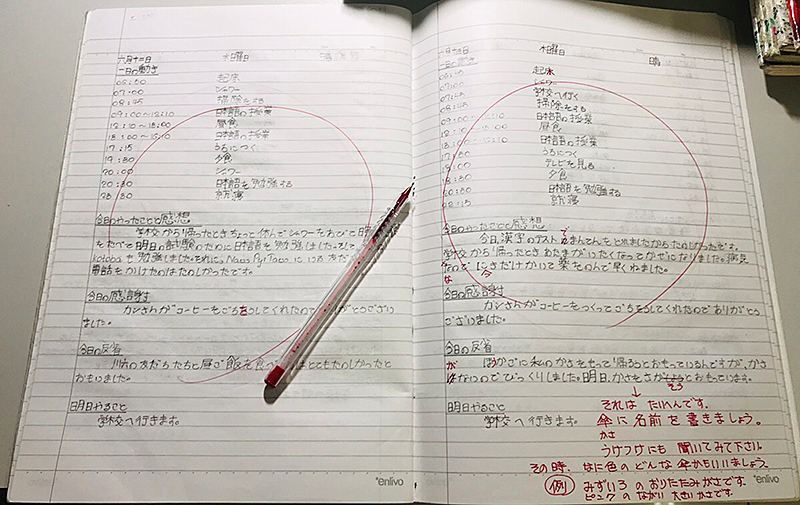 六月十二日 水曜日
一日の動き
06:50 起床
07:00 シャワー
08:45 掃除をする
09:00〜12:10 日本語の授業
12:10〜13:00 昼食
13:00〜 日本語の授業
17:15 うちにつく
19:30 夕食
20:00 シャワー
20:30 日本語を勉強する
23:30 就寝
今日のやったことと感想
学校から帰ったときちょっと休んでシャワーをあびて
をたべて明日の試験のために日本語を勉強しました。
kotobaも勉強しました。それに、
電話をかけたのはたのしかったです。
今日の感謝
カンさんがコーヒーをごちそうしてくれたので
ました。
今日の反省
友だちたちと昼ご飯を食べ はとてもたのしかったと
おもいました。
明日やること
学校へ行きます。
enlivo
六月十三日 木曜日 晴
一日の動き
06:45 起床
07:00 シャワー
学校へ行く
08:45 掃除をする
09:00 12:10 日本語の授業
昼食
日本語の授業
うちにつく
テレビを見る
夕食
日本語を勉強する
就寝
今日のやったことと感想
今日、漢字のテスト で まんてんをとれましたからたのしかったです。
学校から帰ったときあたまがいたくなってかぜになりました。病気
なのでにきだけかいて薬をのんで早くねました。
今日の感謝
カンさんがコーヒーをつくってごちそうしてくれたのでありがとう
ございました。
今日の反省
かさに私のかさをもって帰ろうとおもっているんですが、かさ
がないのでびっくりしました。明日、かさをさがそうとおもっています。
そう
↓
それは たいへんです。
傘に名前を書きましょう。
かさ
うけつけにも 聞いてみて下さい。
その時、なに色のどんな傘かもいいましょう。
例 みずいろのおりたたみがさです。
ピンクの ながい 大きいかさです。
明日やること
学校へ行きます。
enlivo